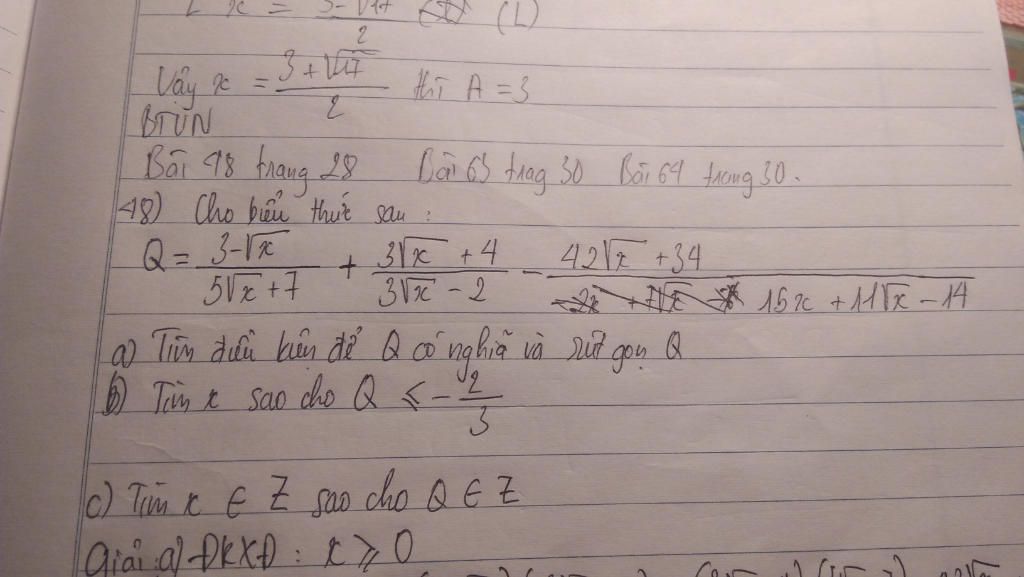 x = (3-√17)/2 (L)
Vậy x = (3+√17)/2 thì A = 3
BTVN
Bài 48 trang 28 Bài 63 trag 30 Bài 64 trang 30.
48) Cho biểu thức sau :
Q = (3-√x)/(5√x+7) + (3√x+4)/(3√x-2) - (42√x+34)/(15x+11√x-14)
a) Tìm điều kiện để Q có nghĩã và rút gọn Q
b) Tìm x sao cho Q ≤ -2/3
c) Tìm x ∈ Z sao cho Q ∈ Z
Giải : a) ĐKXĐ : x ≥ 0